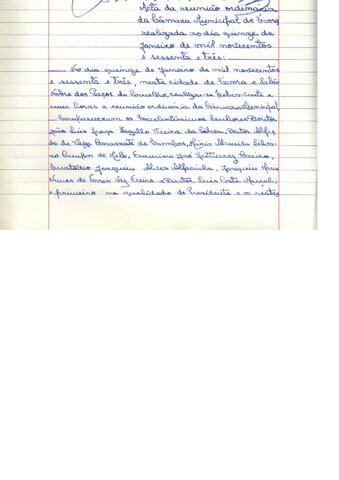 Acta da reunião ordinária
da Câmara Municipal de Évora
realizada no dia quinze de
Janeiro de mil novecentos
e sessenta e três.
No dia quinze de Janeiro de mil novecentos
e sessenta e três, nesta cidade de Évora e Salão
Nobre dos Paços do Concelho, realizou-se pelas vinte e
uma horas a reunião ordinária da Câmara Municipal
Compareceram os Excelentíssimos Senhores Doutor
João Luís Vieira da Silva, Doutor Alfre-
do de de Campos, Almeida Silva-
no de Melo, Francisco José
Joaquim Alves Joaquim
Nunes de Vaz Freire e Doutor Luís
o primeiro na qualidade de Presidente e os restan